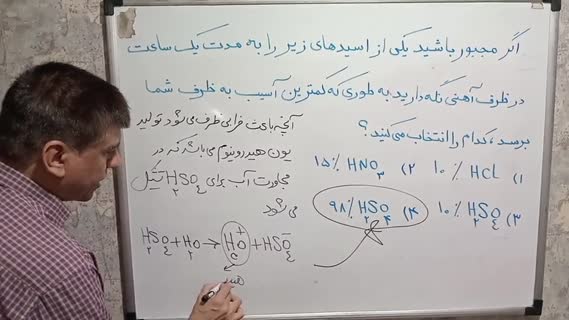 اگر مجبور باشید یکی از اسیدهای زیر را به مدت یک ساعت
در ظرف آهنی نگه دارید به طوری که کمترین آسیب به ظرف شما
برسد، کدام را انتخاب می‌کنید؟
۱) ۱۰٪ HCl ۲) ۱۵٪ HNO₃
۳) ۱۰٪ H₂SO₄ ۴) ۹۸٪ H₂SO₄
آنچه باعث خرابی ظرف می‌شود تولید
یون هیدرونیوم می‌باشد که در
مجاورت آب برای H₂SO₄ تشکیل
می‌شود
H₂SO₄ + H₂O → H₃O⁺ + HSO₄⁻
هید